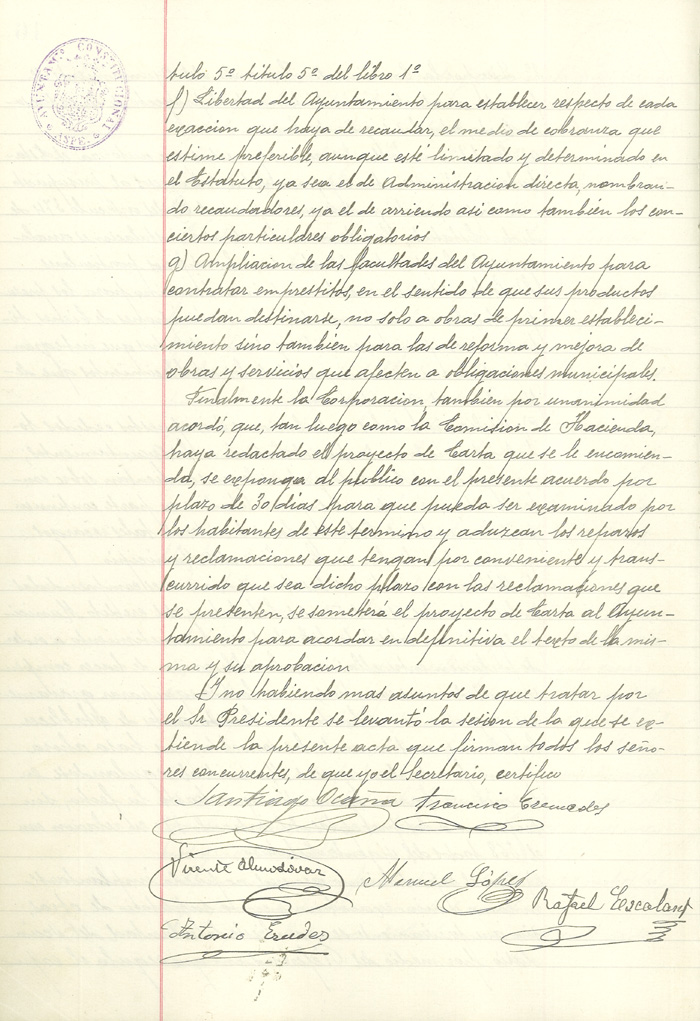 AYUNTAMTO CONSTITUCIONAL
ASPE.
tulo 5º titulo 5º del libro 1º
f) Libertad del Ayuntamiento para establecer respecto de cada
exaccion que haya de recaudar, el medio de cobranza que
estime preferible, aunque esté limitado y determinado en
el Estatuto, ya sea el de Administracion directa, nombran-
do recaudadores, ya el de arriendo asi como también los con-
ciertos particulares obligatorios
g) Ampliacion de las facultades del Ayuntamiento para
contratar emprestitos, en el sentido de que sus productos
puedan destinarse, no solo a obras de primer estableci-
miento sino también para las de reforma y mejora de
obras y servicios que afecten a obligaciones municipales.
Finalmente la Corporacion tambien por unanimidad
acordó, que, tan luego como la Comision de Hacienda,
haya redactado el proyecto de Carta que se le encomien-
da, se exponga al publico con el presente acuerdo por
plazo de 30 dias para que pueda ser examinado por
los habitantes de este termino y aduzcan los reparos
y reclamaciones que tengan por conveniente y trans-
currido que sea dicho plazo con las reclamaciones que
se presenten, se someterá el proyecto de Carta al Ayun-
tamiento para acordar en definitiva el texto de la mis-
ma y su aprobacion
Y no habiendo mas asuntos de que tratar por
el Sr Presidente se levantó la sesion de la que se ex-
tiende la presente acta que firman todos los seño-
res concurrentes, de que yo el Secretario, certifico
Santiago Ocaña Francisco Cremades
Vicente Almodovar
Manuel López
Rafael Escalant
Antonio